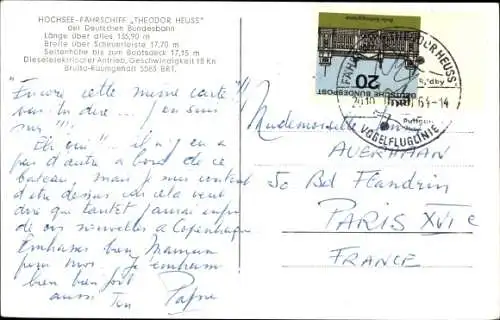 HOCHSEE-FÄHRSCHIFF „THEODOR HEUSS"
der Deutschen Bundesbahn
Länge über alles 135,90 m
Breite über Scheuerleiste 17,70 m
Seitenhöhe bis zum Bootsdeck 17,15 m
Dieselelektrischer Antrieb, Geschwindigkeit 18 Kn
Brutto-Raumgehalt 5583 BRT.
"Encore cette même carte!"
vas-tu dire... J'en suis
sur!!!
Eh oui!... il n'y en a
pas d'autre a bord de ce
bateau mais je suis content
d'être dessus car cela veut
dire que tantôt j'aurai enfin
de vos nouvelles a Copenhague
Embrasse bien Maman
pour moi. Je t'embrasse
bien bien fort
aussi Ton Papa
20
DEUTSCHE BUNDESPOST
THEODOR HEUSS
64-14
Puttgarden
VOGELFLUGLINIE
Mademoiselle
AUERMANN
50 Bd Flandrin
PARIS XVI e
FRANCE